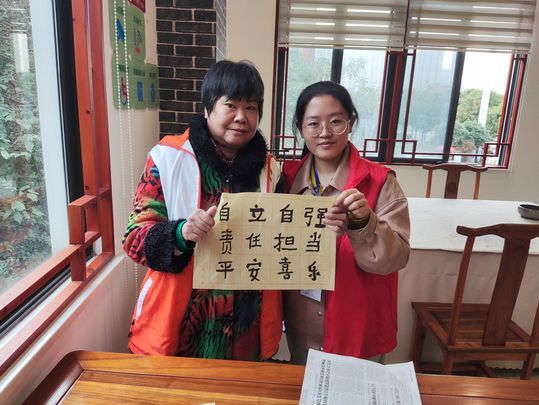 自立自强
责任担当
平安喜乐